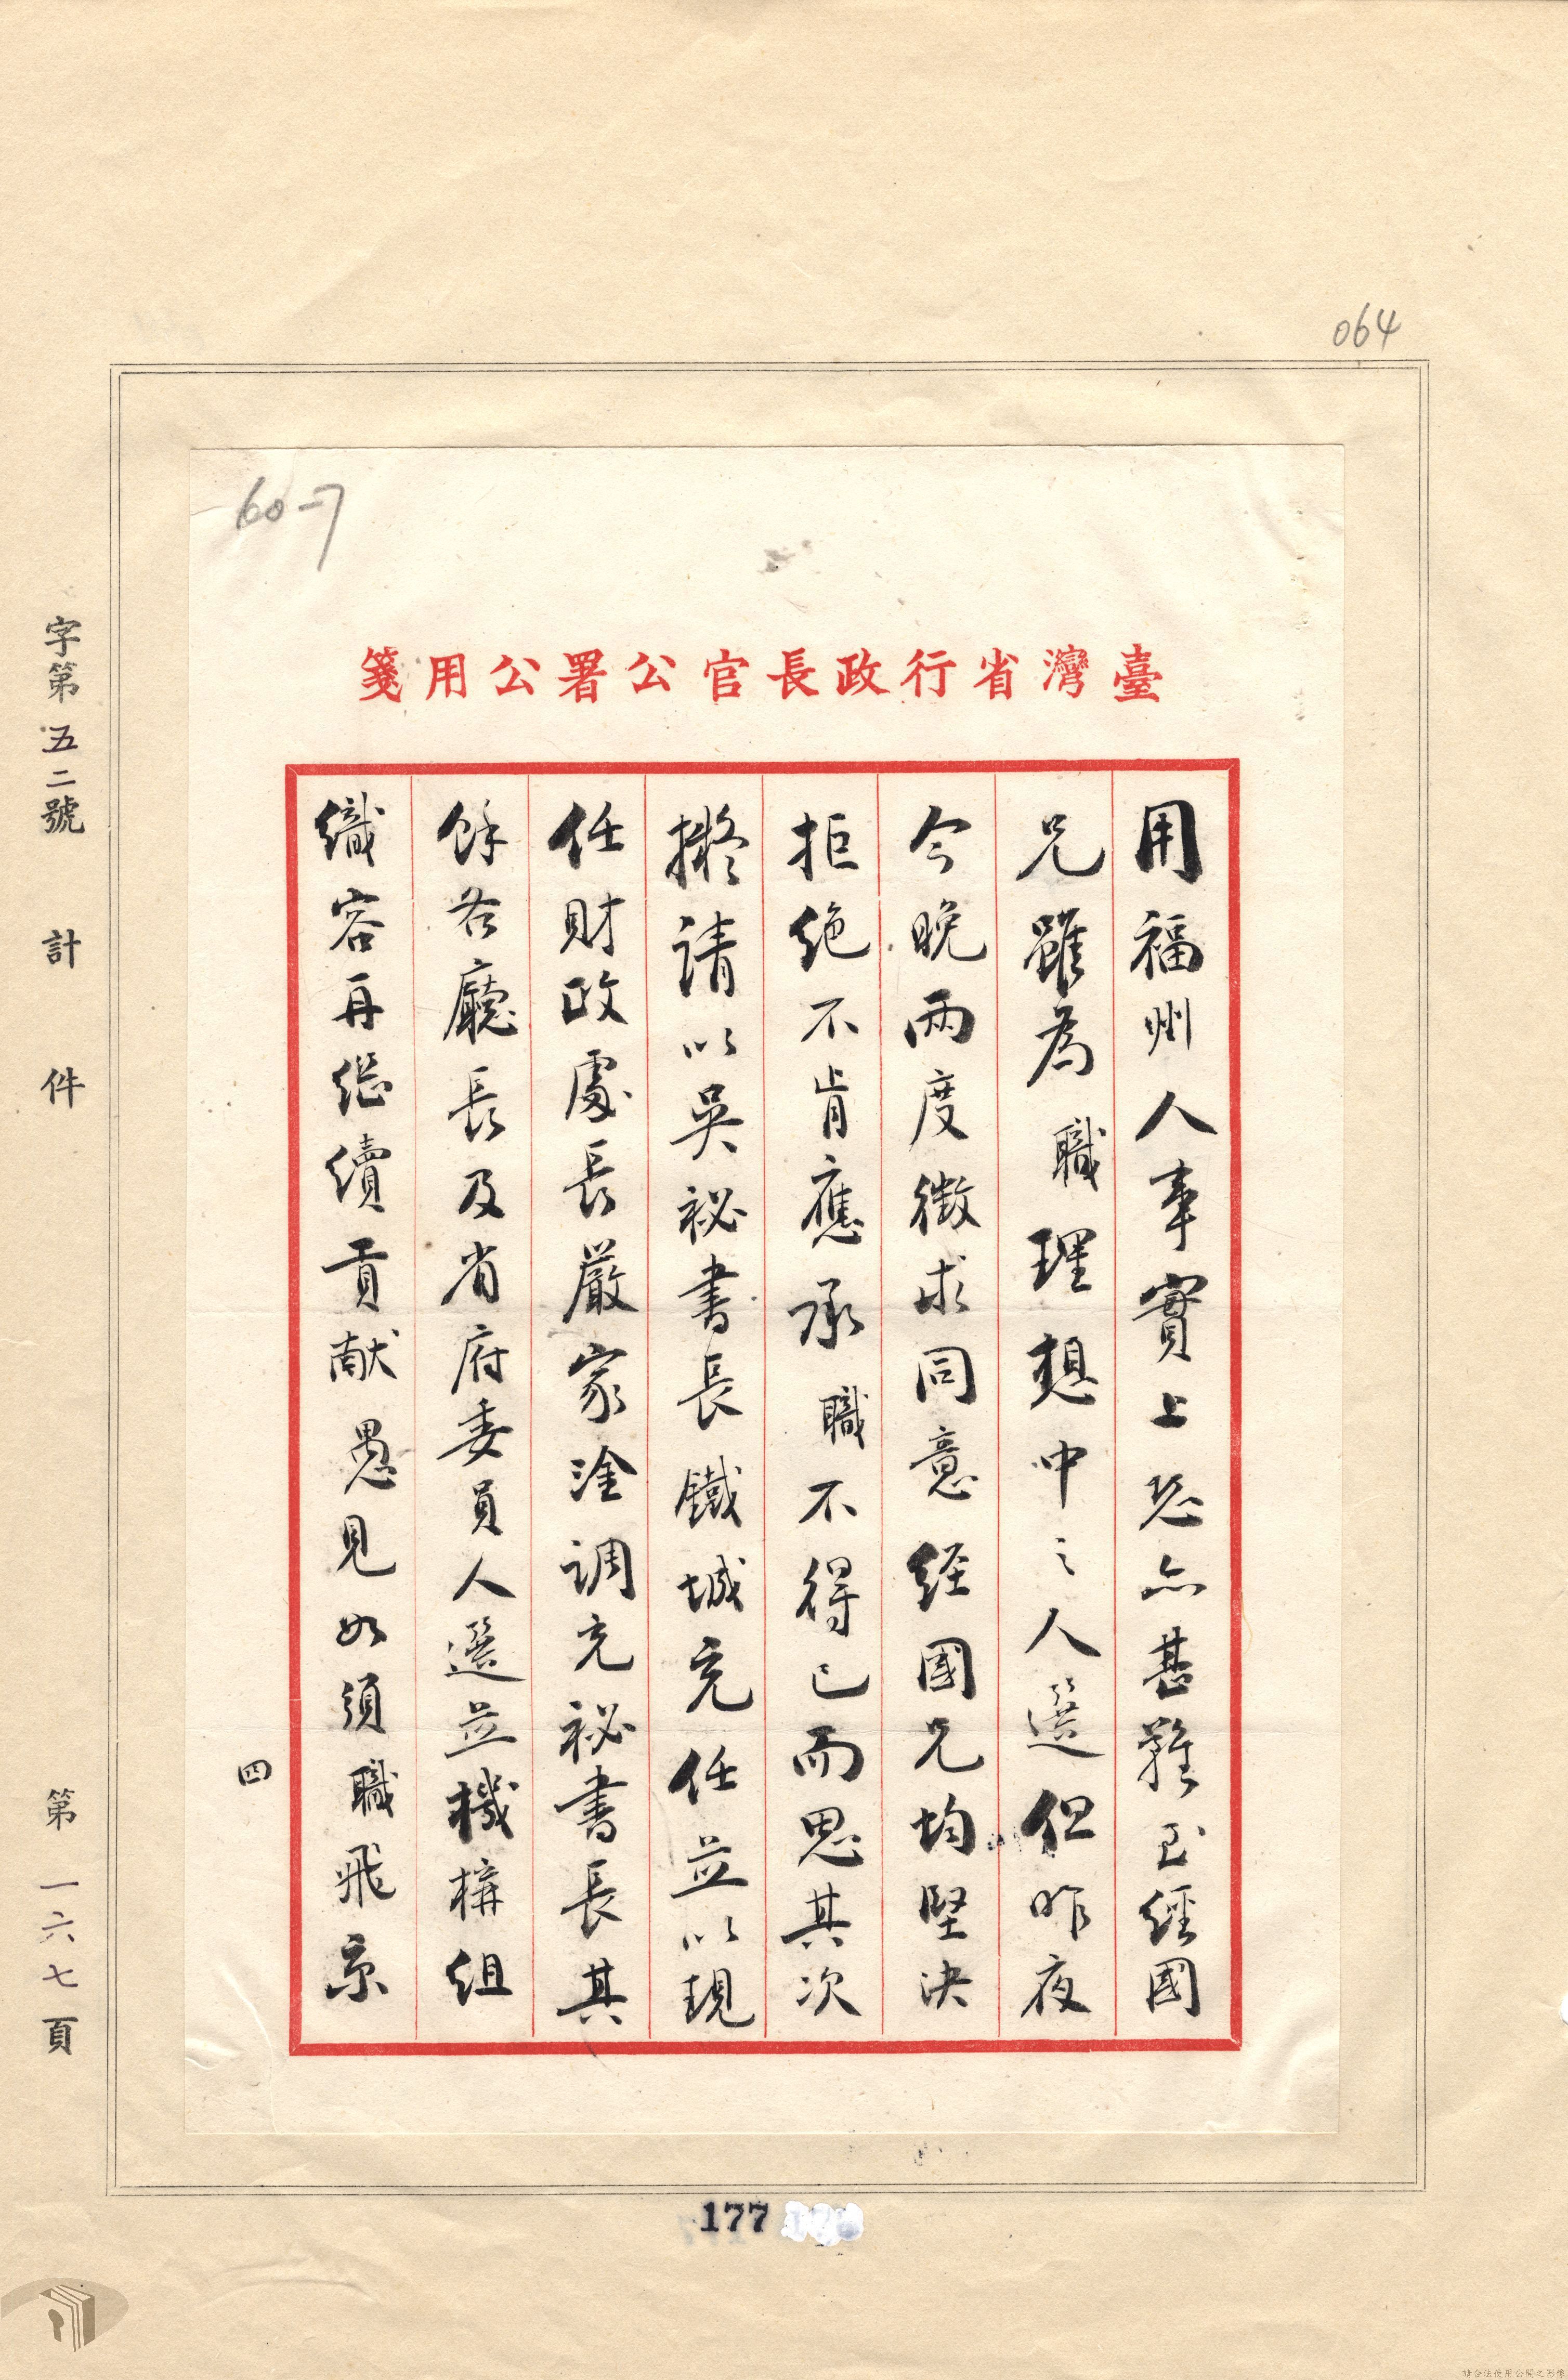 064
60-7
臺灣省行政長官公署公用箋
用福州人事實上恐亦甚難至經國
兄雖為職理想中之人選但昨夜
今晚兩度徵求同意經國兄均堅決
拒絶不肯應承職不得已而思其次
擬請以吳祕書長鐵城充任並以現
任財政處長嚴家淦調充祕書長其
餘各廳長及省府委員人選並機構組
織容再繼續貢献愚見如須職飛京
四
字第五二號 計 件 第一六七頁
177
請合法使用公開之影像